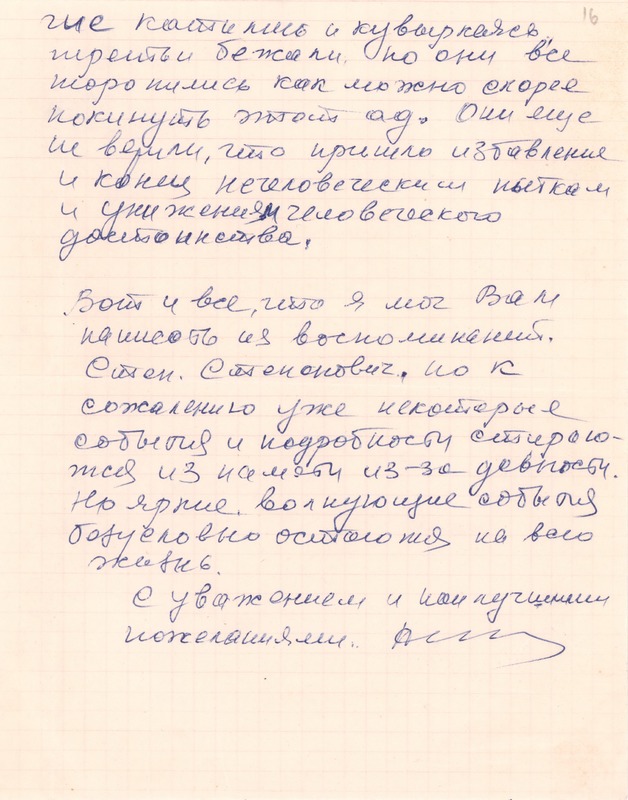 16
гие катились и кувыркаясь,
третьи бежали, но они все
торопились как можно скорее
покинуть этот ад. Они еще
не верили, что пришло избавление
и конец нечеловеческим пыткам
и унижениям человеческого
достоинства.
Вот и все, что я мог Вам
написать из воспоминаний.
Степ. Степанович, но к
сожалению уже некоторые
события и подробности стираю-
тся из памяти из-за давности.
Но яркие, волнующие события
безусловно остаются на всю
жизнь.
С уважением и наилучшими
пожеланиями.